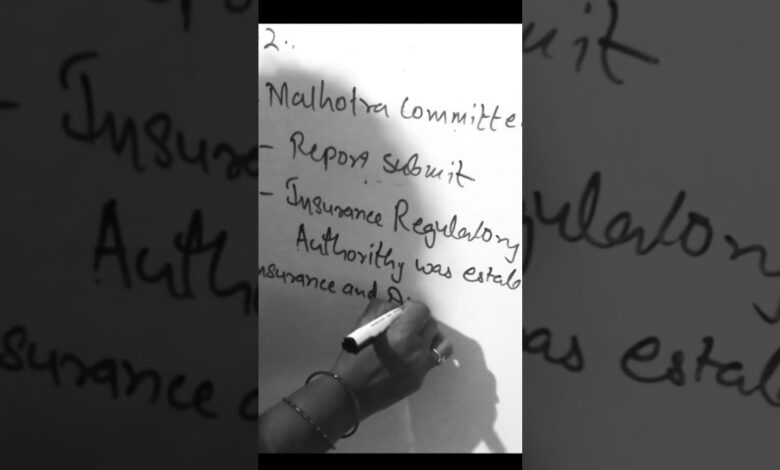 2..
Malhotra Committe
- Report submit
- Insurance Regulatory
Authorithy was estab
nsurance and D